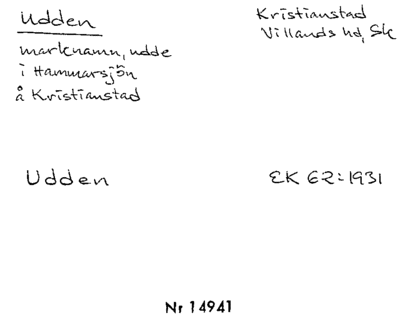 Udden
Kristianstad
Villands hd, Sk
marknamn, udde
i Hammarsjön
å Kristianstad
Udden
EK 62:1931
Nr 14941